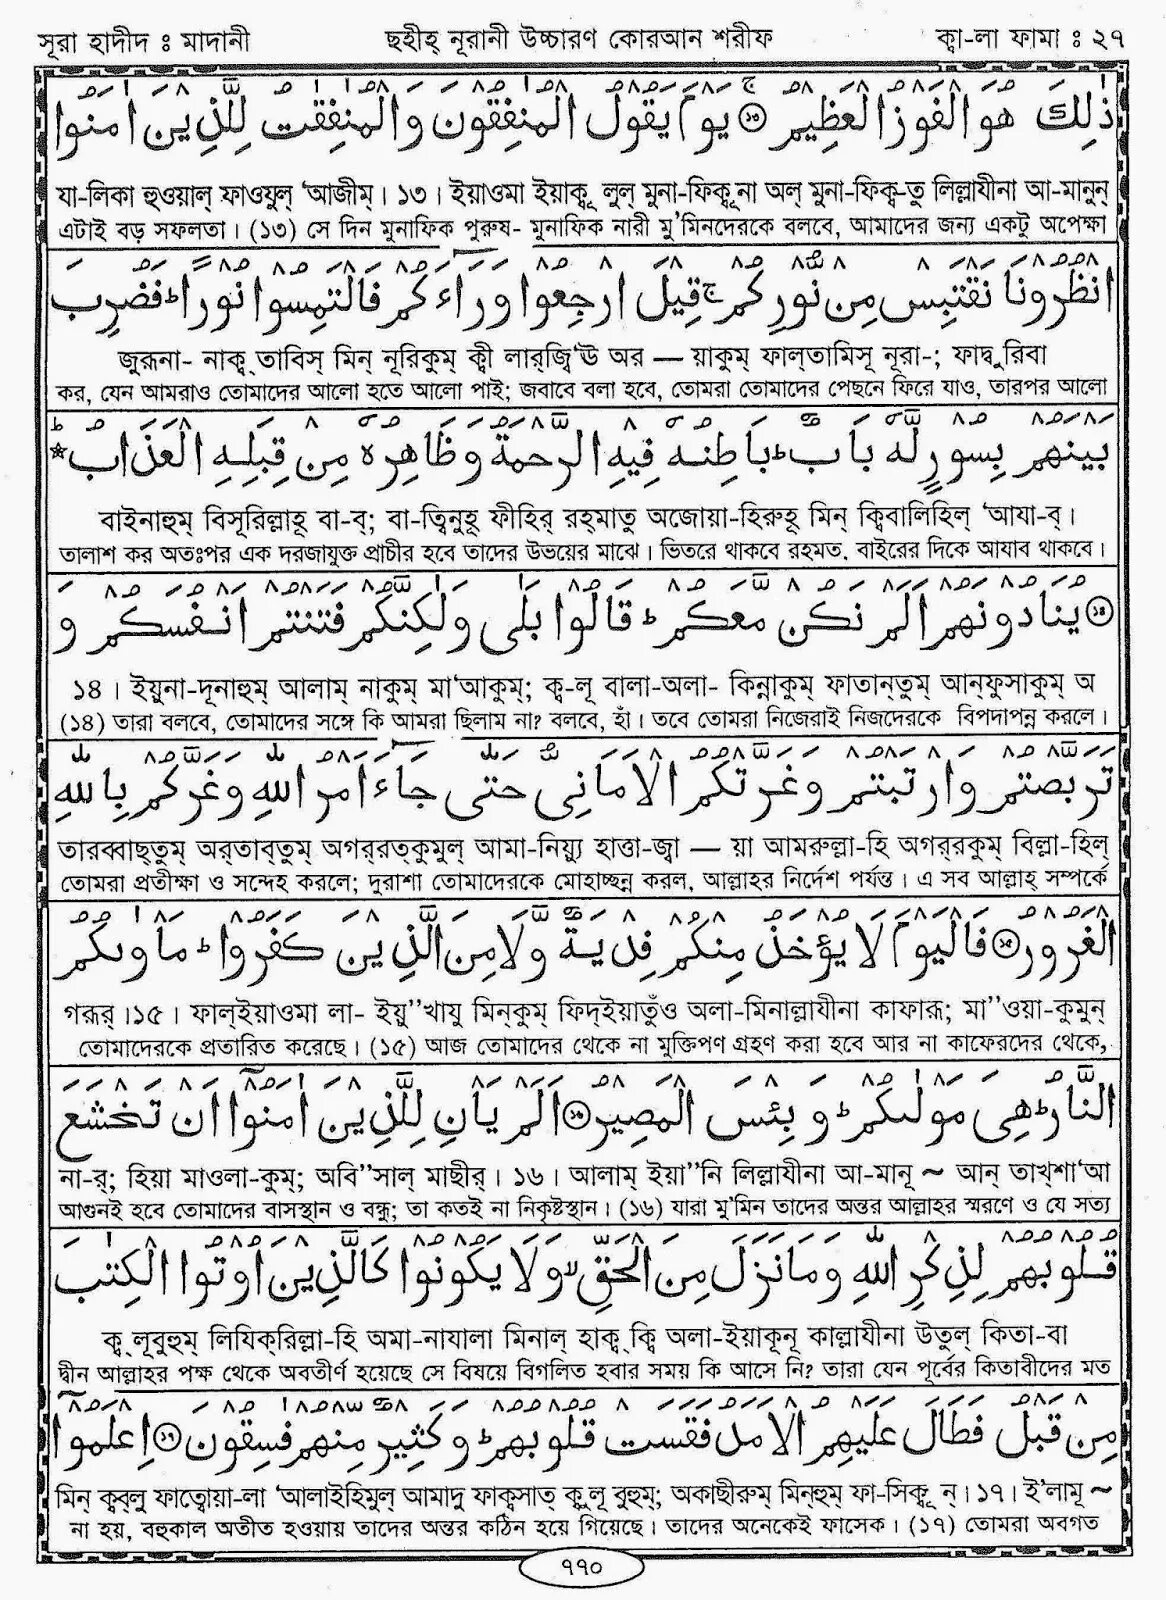 সূরা হাদীদ ঃ মাদানী
ছহীহ্ নূরানী উচ্চারণ কোরআন শরীফ
ক্বা-লা ফামা ঃ ২৭
ذٰلِكَ هُوَ الْفَوْزُ الْعَظِيْمُ ۝ يَوْمَ يَقُوْلُ الْمُنٰفِقُوْنَ وَالْمُنٰفِقٰتُ لِلَّذِيْنَ اٰمَنُوا
যা-লিকা হুওয়াল্ ফাওযুল্ ‘আজীম্। ১৩। ইয়াওমা ইয়াক্বূ লুল্ মুনা-ফিক্বূনা অল্ মুনা-ফিক্ব-তু লিল্লাযীনা আ-মানুন্
এটাই বড় সফলতা। (১৩) সে দিন মুনাফিক পুরুষ- মুনাফিক নারী মু’মিনদেরকে বলবে, আমাদের জন্য একটু অপেক্ষা
انْظُرُوْنَا نَقْتَبِسْ مِنْ نُّوْرِكُمْ ۚ قِيْلَ ارْجِعُوْا وَرَآءَكُمْ فَالْتَمِسُوْا نُوْرًا ؕ فَضُرِبَ
জুরূনা- নাক্ব্ তাবিস্ মিন্ নূরিকুম্ ক্বী লার্জ্বি‘ঊ অর — য়াকুম্ ফাল্তামিসূ নূরা-; ফাদ্বুরিবা
কর, যেন আমরাও তোমাদের আলো হতে আলো পাই; জবাবে বলা হবে, তোমরা তোমাদের পেছনে ফিরে যাও, তারপর আলো
بَيْنَهُمْ بِسُوْرٍ لَّهٗ بَابٌ ؕ بَاطِنُهٗ فِيْهِ الرَّحْمَةُ وَظَاهِرُهٗ مِنْ قِبَلِهِ الْعَذَابُ ؕ
বাইনাহুম্ বিসূরিল্লাহূ বা-ব্; বা-ত্বিনুহূ ফীহির্ রহ্মাতু অজোয়া-হিরুহূ মিন্ ক্বিবালিহিল্ ‘আযা-ব্।
তালাশ কর অতঃপর এক দরজাযুক্ত প্রাচীর হবে তাদের উভয়ের মাঝে। ভিতরে থাকবে রহমত, বাইরের দিকে আযাব থাকবে।
۝ يُنَادُوْنَهُمْ اَلَمْ نَكُنْ مَّعَكُمْ ؕ قَالُوْا بَلٰى وَلٰكِنَّكُمْ فَتَنْتُمْ اَنْفُسَكُمْ وَ
১৪। ইয়ুনা-দূনাহুম্ আলাম্ নাকুম্ মা‘আকুম্; ক্ব-লূ বালা-অলা- কিন্নাকুম্ ফাতান্তুম্ আন্ফুসাকুম্ অ
(১৪) তারা বলবে, তোমাদের সঙ্গে কি আমরা ছিলাম না? বলবে, হাঁ। তবে তোমরা নিজেরাই নিজদেরকে বিপদাপন্ন করলে।
تَرَبَّصْتُمْ وَارْتَبْتُمْ وَغَرَّتْكُمُ الْاَمَانِىُّ حَتّٰى جَآءَ اَمْرُ اللّٰهِ وَغَرَّكُمْ بِاللّٰهِ
তারব্বাছ্তুম্ অর্তাব্তুম্ অগর্রত্কুমুল্ আমা-নিয়্যু হাত্তা-জ্বা — য়া আমরুল্লা-হি অগর্রকুম্ বিল্লা-হিল্
তোমরা প্রতীক্ষা ও সন্দেহ করলে; দুরাশা তোমাদেরকে মোহাচ্ছন্ন করল, আল্লাহর নির্দেশ পর্যন্ত। এ সব আল্লাহ্ সম্পর্কে
الْغَرُوْرُ ۝ فَالْيَوْمَ لَا يُؤْخَذُ مِنْكُمْ فِدْيَةٌ وَّلَا مِنَ الَّذِيْنَ كَفَرُوْا ؕ مَاْوٰىكُمُ
গরূর্।১৫। ফাল্ইয়াওমা লা- ইয়ু’’খাযু মিন্কুম্ ফিদ্ইয়াতুঁও অলা-মিনাল্লাযীনা কাফারূ; মা’’ওয়া-কুমুন্
তোমাদেরকে প্রতারিত করেছে। (১৫) আজ তোমাদের থেকে না মুক্তিপণ গ্রহণ করা হবে আর না কাফেরদের থেকে,
النَّارُ ؕ هِىَ مَوْلٰىكُمْ ؕ وَبِئْسَ الْمَصِيْرُ ۝ اَلَمْ يَاْنِ لِلَّذِيْنَ اٰمَنُوْۤا اَنْ تَخْشَعَ
না-র্; হিয়া মাওলা-কুম্; অবি’’সাল্ মাছীর্। ১৬। আলাম্ ইয়া’’নি লিল্লাযীনা আ-মানূ ~ আন্ তাখ্শা‘আ
আগুনই হবে তোমাদের বাসস্থান ও বন্ধু; তা কতই না নিকৃষ্টস্থান। (১৬) যারা মু’মিন তাদের অন্তর আল্লাহর স্মরণে ও যে সত্য
قُلُوْبُهُمْ لِذِكْرِ اللّٰهِ وَمَا نَزَلَ مِنَ الْحَقِّ ۙ وَلَا يَكُوْنُوْا كَالَّذِيْنَ اُوْتُوا الْكِتٰبَ
ক্বুলূবুহুম্ লিযিক্রিল্লা-হি অমা-নাযালা মিনাল্ হাক্ব্ক্বি অলা-ইয়াকূনূ কাল্লাযীনা উতুল্ কিতা-বা
দ্বীন আল্লাহর পক্ষ থেকে অবতীর্ণ হয়েছে সে বিষয়ে বিগলিত হবার সময় কি আসে নি? তারা যেন পূর্বের কিতাবীদের মত
مِنْ قَبْلُ فَطَالَ عَلَيْهِمُ الْاَمَدُ فَقَسَتْ قُلُوْبُهُمْ ؕ وَكَثِيْرٌ مِّنْهُمْ فٰسِقُوْنَ ۝ اِعْلَمُوْۤا
মিন্ ক্বব্লু ফাত্বোয়া-লা ‘আলাইহিমুল্ আমাদু ফাক্বসাত্ ক্বুলূ বুহুম্; অকাছীরুম্ মিন্হুম্ ফা-সিক্বূ ন্।১৭। ই’লামূ ~
না হয়, বহুকাল অতীত হওয়ায় তাদের অন্তর কঠিন হয়ে গিয়েছে। তাদের অনেকেই ফাসেক। (১৭) তোমরা অবগত
৭৭০